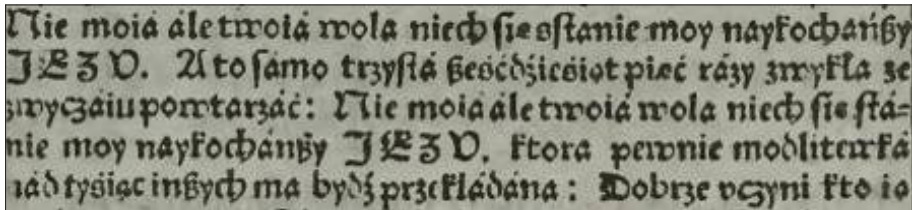 Nie moiá ále twoiá wola niech ſię oſtanie moy naykochańßy
JEZV. A to ſamo trzyſtá ßeśćdźieśiąt pięć rázy zwykła ze
zwyczáiu powtarzáć: Nie moiá ále twoiá wola niech ſię ſtá-
nie moy naykochánßy JEZV. ktora pewnie modlitewká
nád tyśiąc inßych ma bydź przekłádána: Dobrze vczyni kto ią